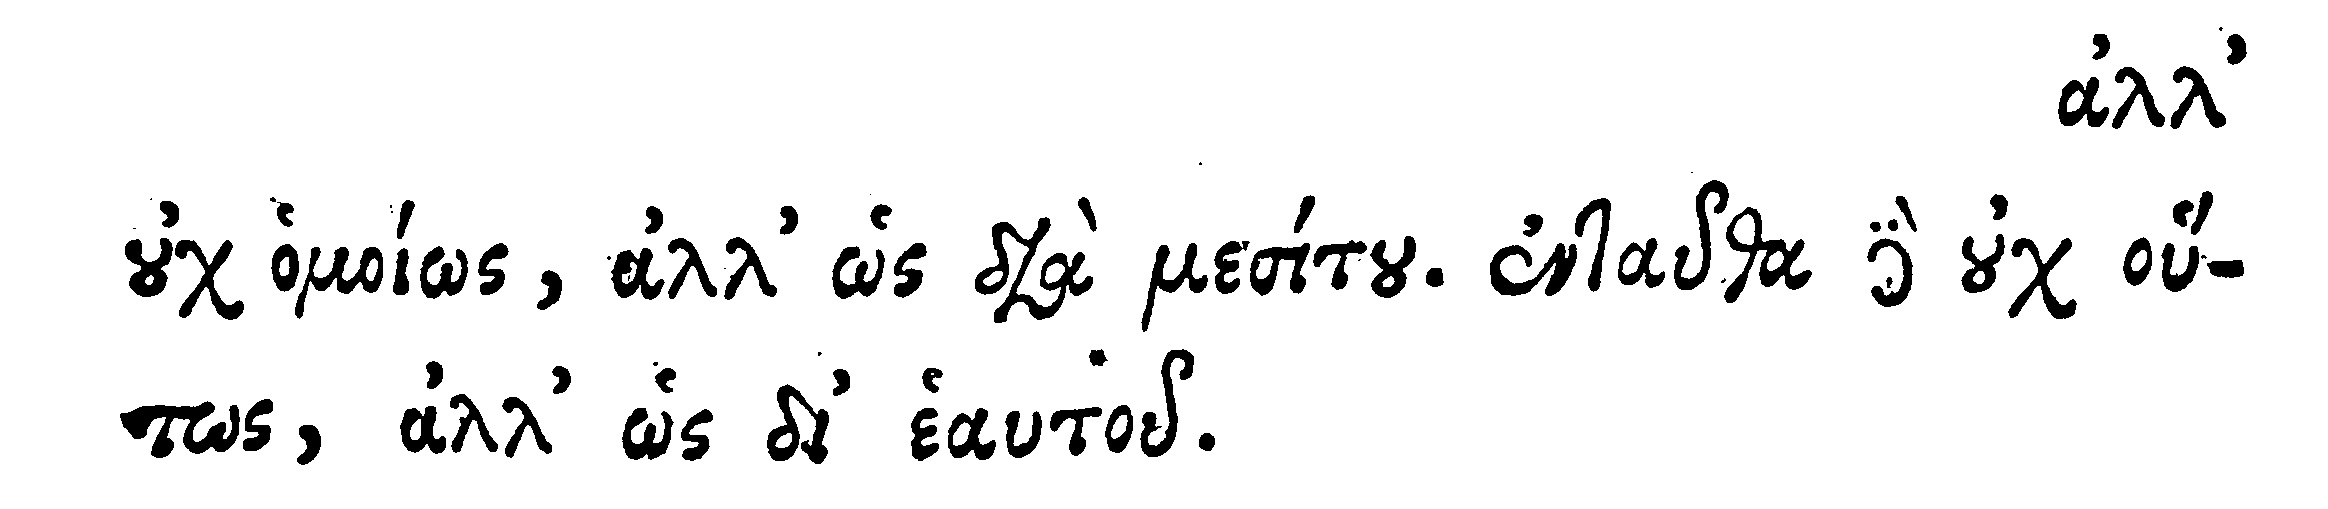 ἀλλ’
οὐχ ὁμοίως, ἀλλ’ ὡς διὰ μεσίτου. ἐνταῦθα δὲ οὐχ οὕ-
τως, ἀλλ’ ὡς δι’ ἑαυτοῦ.